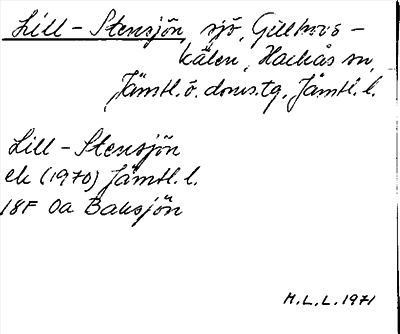 Lill-Stensjön, sjö, Gillhovs-
kälen, Hackås sn,
Jämtl. ö. doms.tg. Jämtl. l.
Lill-Stensjön
ek (1970) Jämtl. l.
18F 0a Baksjön
M.L.L. 1971